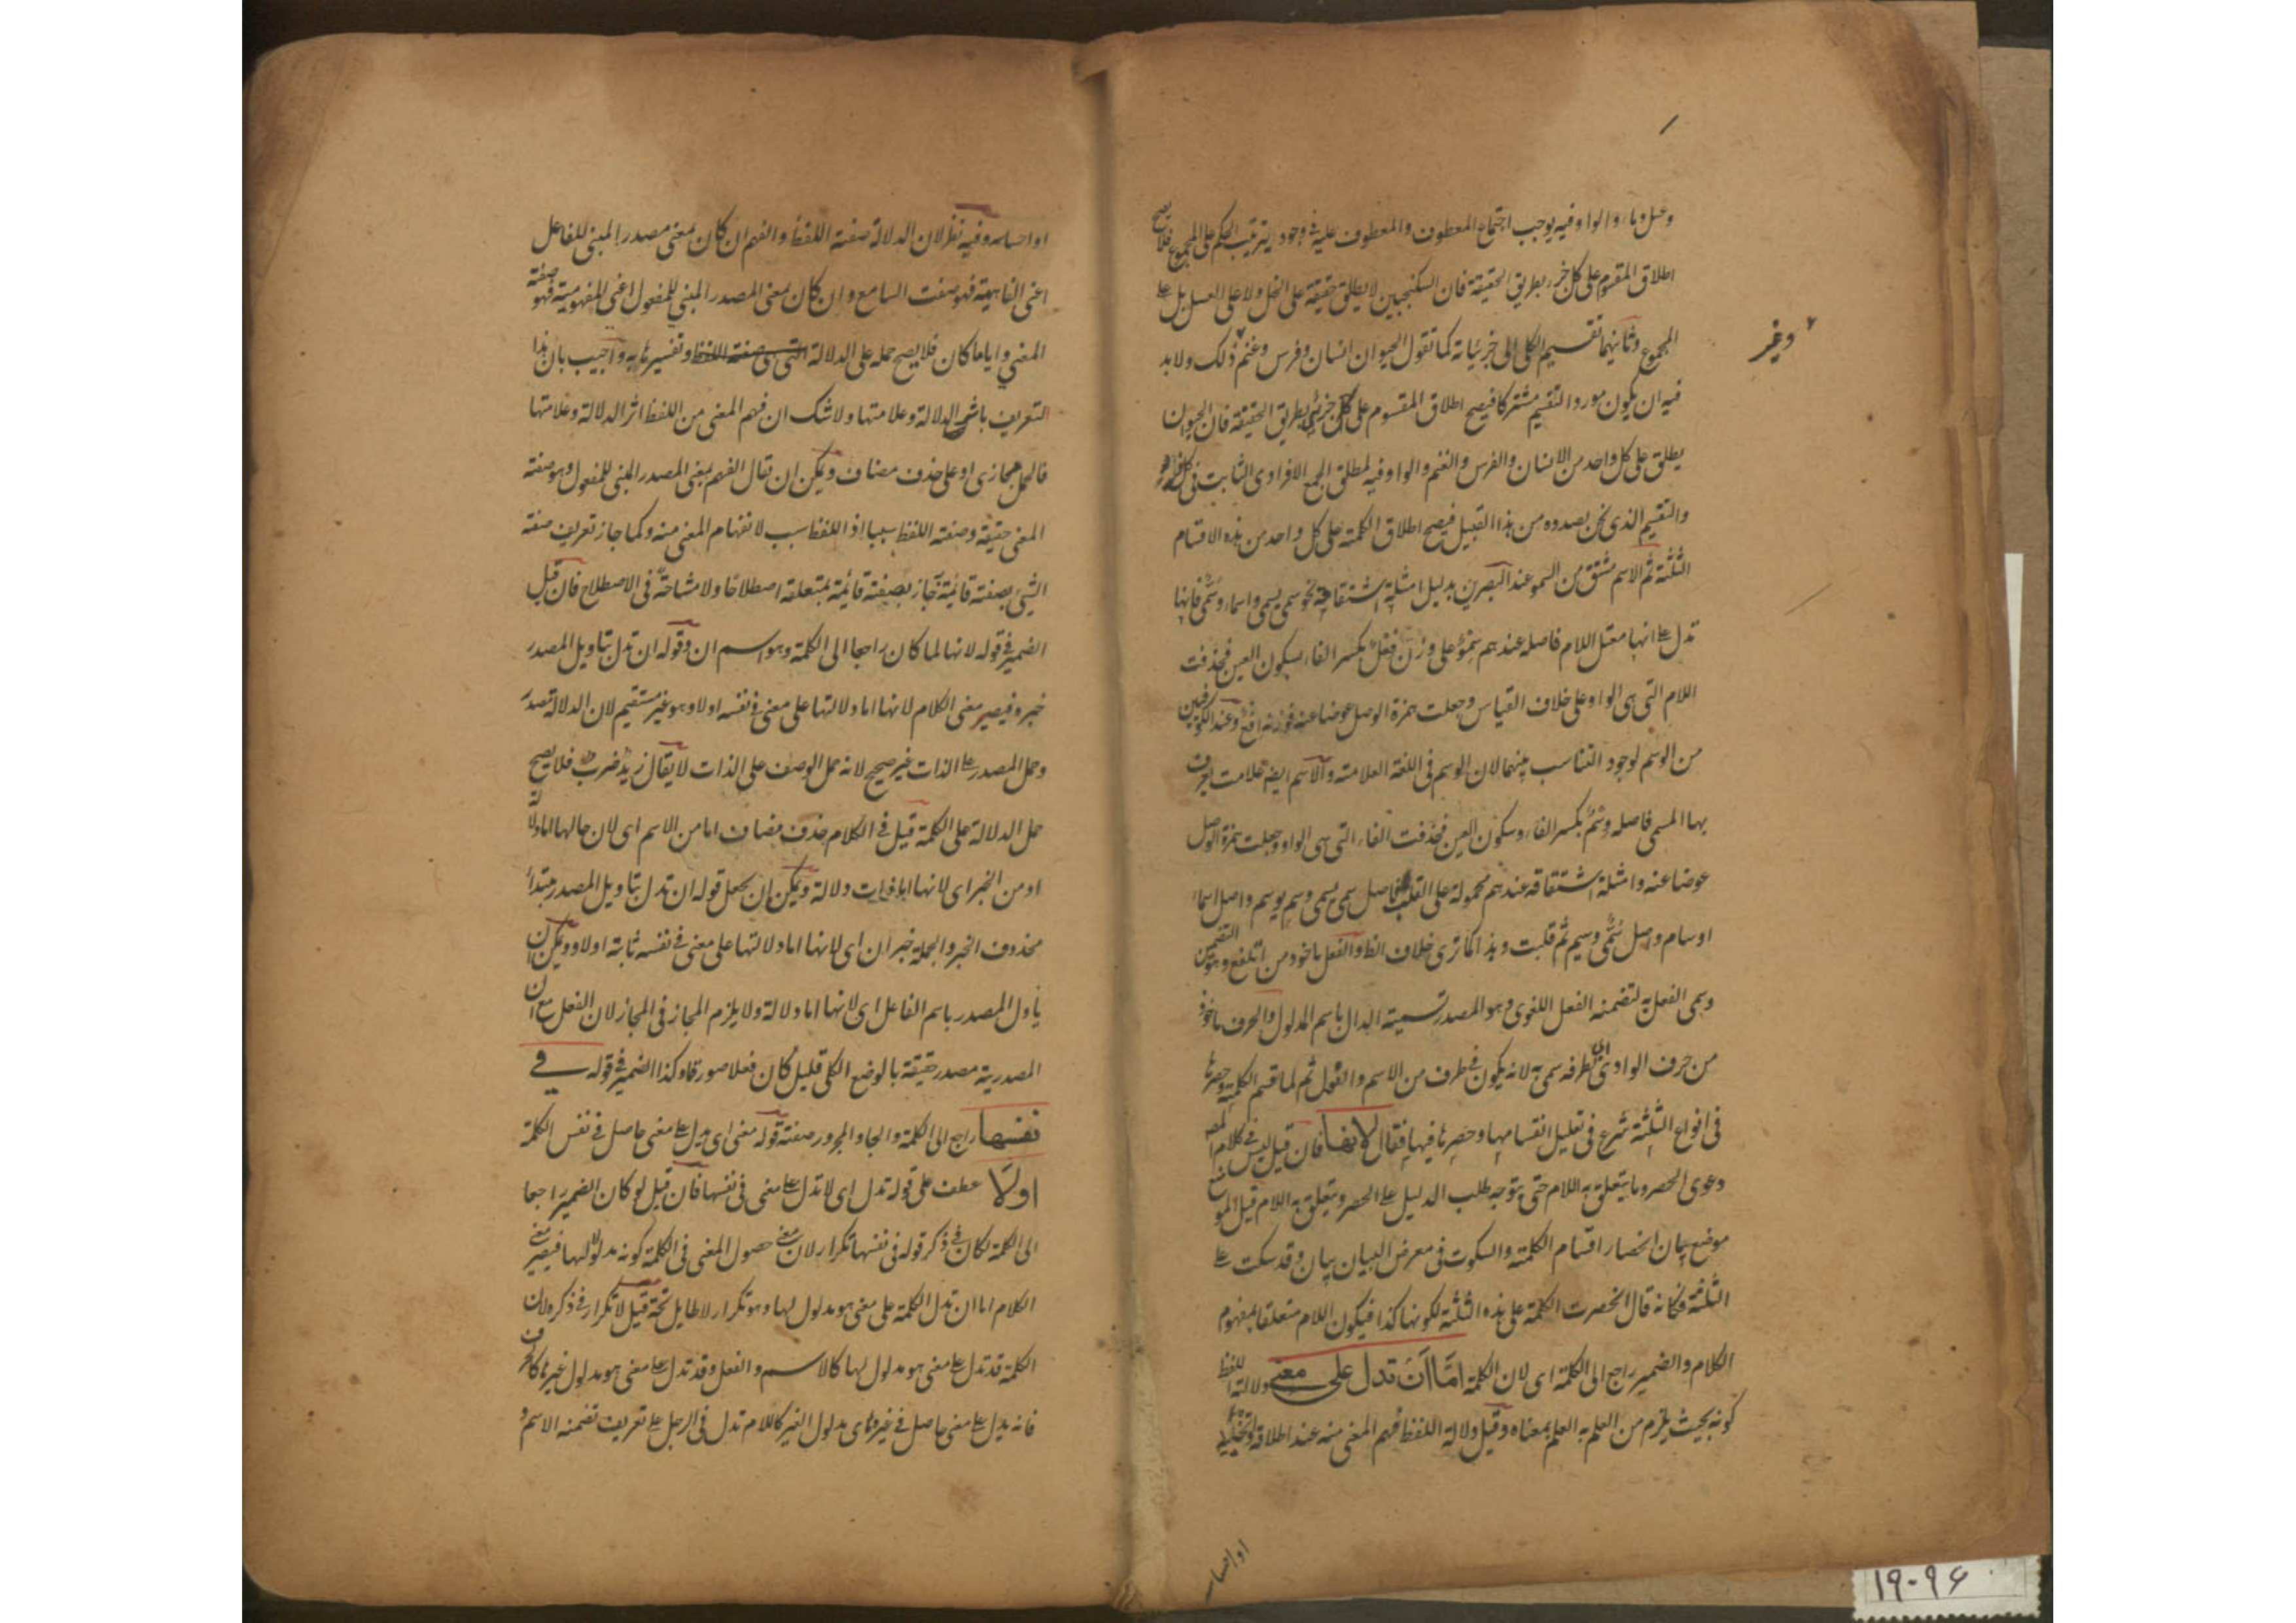 وعسل وماء والواو فيه يوجب اجتماع المعطوف والمعطوف عليه فى وجود يترتب الحكم على المجموع فلا يصح
اطلاق المقسوم على كل جزء بطريق الحقيقة فان السكنجبين لا يطلق حقيقة على الخل ولا على العسل بل على
المجموع وثانيهما تقسيم الكلى الى جزئياته كما تقول الحيوان انسان وفرس وغنم ذلك ولابد
وغير
فيه ان يكون مورد التقسيم مشتركا فيصح اطلاق المقسوم على كل جزئى بطريق الحقيقة فان الحيوان
يطلق على كل واحد من الانسان والفرس والغنم والواو فيه لمطلق الجمع الافرادى الثابت فى كل
والتقسيم الذى نحن بصدده من هذا القبيل فيصح اطلاق الكلمة على كل واحد من هذه الاقسام
الثلثة ثم الاسم مشتق من السمو عند البصرين بدليل امثلة اشتقاقه نحو سمى يسمى واسماء وسمى فانها
تدل على انها معتل اللام فاصله عندهم سمو على وزن فعل بكسر الفاء بسكون العين فحذفت
اللام التى هى الواو على خلاف القياس وجعلت همزة الوصل عوضا عنه فوزنه افع وعند الكوفيين
من الوسم لوجود التناسب بينهما لان الوسم فى اللغة العلامة والاسم ايضا علامت يعرف
بها المسمى فاصله وسم بكسر الفاء وسكون العين فحذفت الفاء التى هى الواو وجعلت همزة الوصل
عوضا عنه وامثلة اشتقاقه عندهم محمولة على القلب فاصل سمى يسمى وسم يوسم واصل اسماء
اوسام واصل سمى وسيم ثم قلبت وهذا كما ترى خلاف الظ والفعل ماخوذ من التلفع وهو التضمن
وسمى الفعل به لتضمنه الفعل اللغوى وهو المصدر تسمية الدال باسم المدلول والحرف ماخوذ
من حرف الوادى اى طرفه سمى به لانه يكون فى طرف من الاسم والفعل ثم لما قسم الكلمة وحصرها
فى انواع الثلثة شرع فى تعليل انقسامها وحصرها فيها فقال لانها فان قيل ليس فى كلام المصـ
دعوى الحصر وما يتعلق به اللام حتى يتوجه طلب الدليل على الحصر ويتعلق به اللام قيل الموضع
موضع بيان انحصار اقسام الكلمة والسكوت فى معرض البيان بيان وقد سكت على
الثلثة فكانه قال انحصرت الكلمة على هذه الثلثة لكونها كذا فيكون اللام متعلقا بمفهوم
الكلام والضمير راجع الى الكلمة اى لان الكلمة اما ان تدل على معنى ودلالة اللفظ
كونه بحيث يلزم من العلم به العلم بمعناه وقيل دلالة اللفظ فهم المعنى منه عند اطلاقه
او احساسه
او احساسه وفيه نظر لان الدلالة صفة اللفظ والفهم ان كان بمعنى مصدر المبنى للفاعل
اعنى الفاهمية فهو صفت السامع وان كان بمعنى المصدر المبنى للمفعول اعنى المفهومية فهو صفة
المعنى واياما كان فلا يصح حمله على الدلالة التى هى صفة اللفظ وتفسيرها به واجيب بان هذا
التعريف باثر الدلالة وعلامتها ولا شك ان فهم المعنى من اللفظ اثر الدلالة وعلامتها
فالحمل مجازى او على حذف مضاف ويمكن ان تقال الفهم بمعنى المصدر المبنى للمفعول وهو صفة
المعنى حقيقة وصفة اللفظ سببا اذ اللفظ سبب لانفهام المعنى منه وكما جاز تعريف صفة
الشئ بصفة قائمة جاز بصفة قائمة بمتعلقه اصطلاحا ولا مشاحة فى الاصطلاح فان قيل
الضمير فى قوله لانها لما كان راجعا الى الكلمة وهو اسم ان وقوله ان تدل بتاويل المصدر
خبره فيصير معنى الكلام لانها اما دلالتها على معنى فى نفسه اولا وهو غير مستقيم لان الدلالة مصدر
وحمل المصدر على الذات غير صحيح لانه حمل الوصف على الذات لا يقال زيد ضرب فلا يصح
حمل الدلالة على الكلمة قيل فى الكلام حذف مضاف اما من الاسم اى لان حالها اما دلالة
او من الخبر اى لانها اما ذات دلالة ويمكن ان يجعل قوله ان تدل بتاويل المصدر مبتداء
محذوف الخبر والجملة خبر ان اى لانها اما دلالتها على معنى فى نفسه ثابتة اولا ويمكن ان
يأول المصدر باسم الفاعل اى لانها اما دلالة ولا يلزم المجاز فى المجاز لان الفعل مع ان
المصدرية مصدر حقيقة بالوضع الكلى قليل كان فعلا صورة وكذا الضمير فى قوله فى
نفسها راجع الى الكلمة والجار والمجرور صفة قوله معنى اى يدل على معنى حاصل فى نفس الكلمة
اولا عطف على قوله تدل اى لا تدل على معنى فى نفسها فان قيل لو كان الضمير راجعا
الى الكلمة لكان فى ذكر قوله فى نفسها تكرار لان معنى حصول المعنى فى الكلمة كونه مدلولا لها فيصير معنى
الكلام اما ان تدل الكلمة على معنى هو مدلول لها وهو تكرار لا طايل تحته قيل لا تكرار فى ذكره لان
الكلمة قد تدل على معنى هو مدلول لها كالاسم والفعل وقد تدل على معنى هو مدلول غيرها كالحرف
فانه يدل على معنى حاصل فى غيره اى مدلول الغير كاللام تدل فى الرجل على تعريف تضمنه الاسم و
١٩٠٩٤